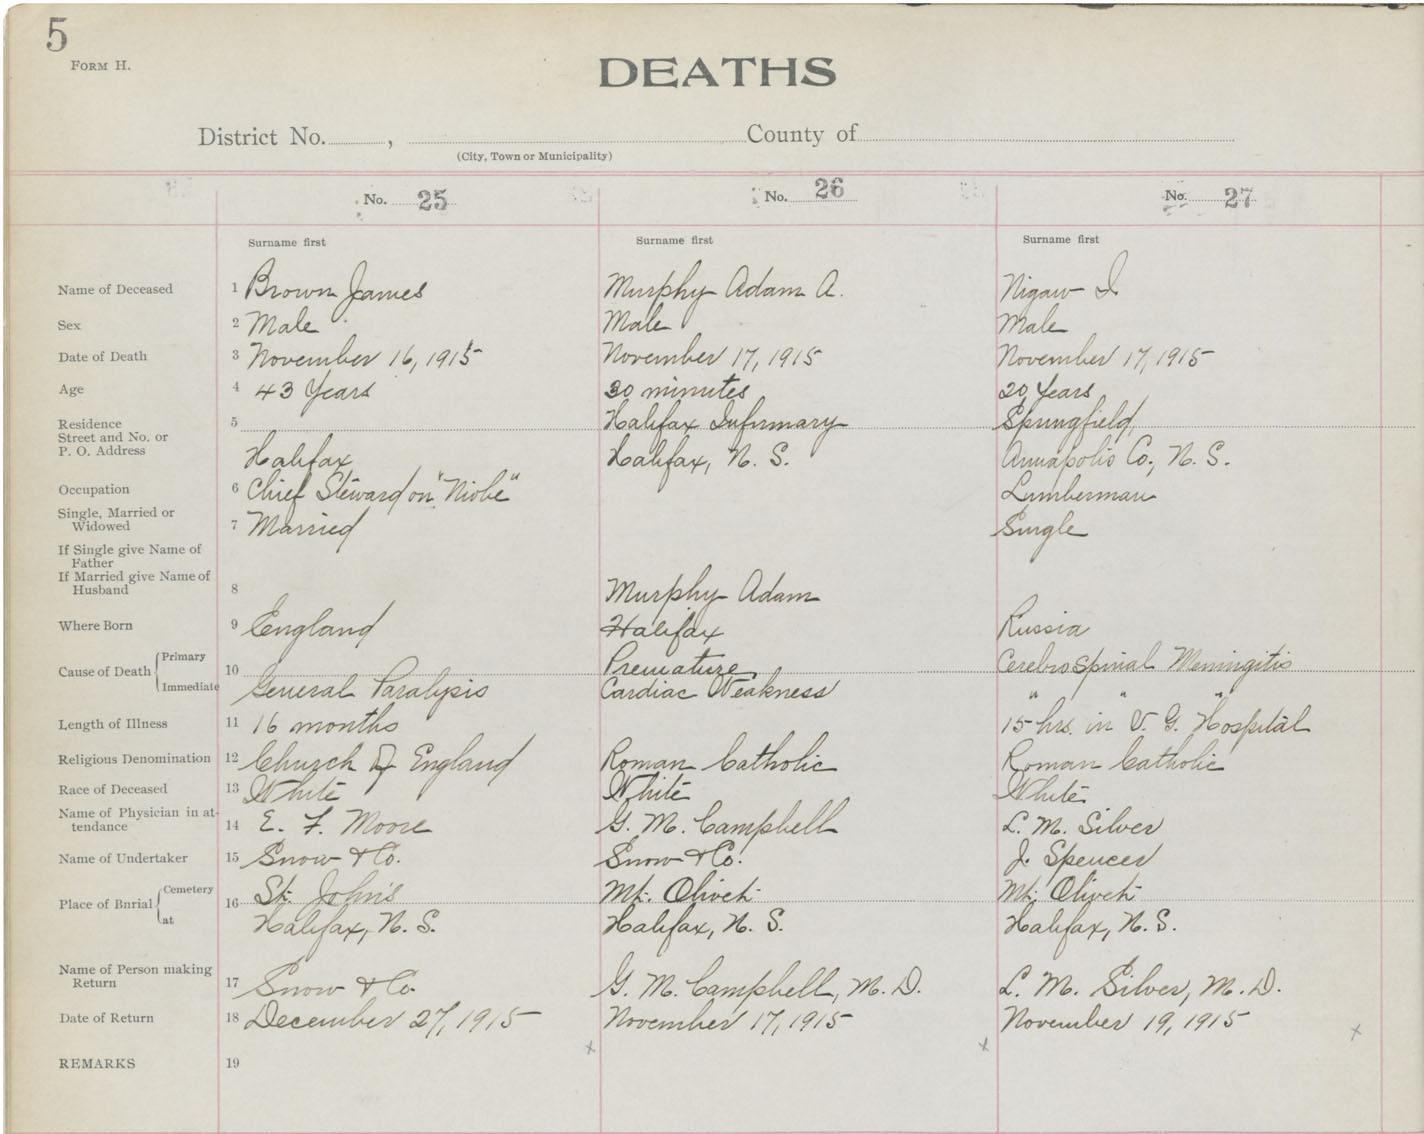 5
FORM H.
DEATHS
District No. , County of
(City, Town or Municipality)
No. 25 No. 26 No. 27
Surname first Surname first Surname first
Name of Deceased 1 Brown James Murphy Adam A. Nigaw I
Sex 2 Male Male Male
Date of Death 3 November 16, 1915 November 17, 1915 November 17, 1915
Age 4 43 Years 30 minutes 20 Years
Residence 5 Halifax Infirmary Springfield,
Street and No. or
P. O. Address Halifax Halifax, N. S. Annapolis Co., N. S.
Occupation 6 Chief Steward on "Niobe" Lumberman
Single, Married or
Widowed 7 Married Single
If Single give Name of
Father
If Married give Name of
Husband 8 Murphy Adam
Where Born 9 England Halifax Russia
Cause of Death Primary 10 Premature Cerebro Spinal Meningitis
Immediate General Paralysis Cardiac Weakness " " "
Length of Illness 11 16 months 15 hrs. in V. G. Hospital
Religious Denomination 12 Church of England Roman Catholic Roman Catholic
Race of Deceased 13 White White White
Name of Physician in at-
tendance 14 E. F. Moore G. M. Campbell L. M. Silver
Name of Undertaker 15 Snow & Co. Snow & Co. J. Spencer
Place of Bnrial Cemetery 16 St. John's Mt. Olivet Mt. Olivet
at Halifax, N. S. Halifax, N. S. Halifax, N. S.
Name of Person making
Return 17 Snow & Co. G. M. Campbell, M. D. L. M. Silver, M. D.
Date of Return 18 December 27, 1915 November 17, 1915 November 19, 1915
x x x
REMARKS 19